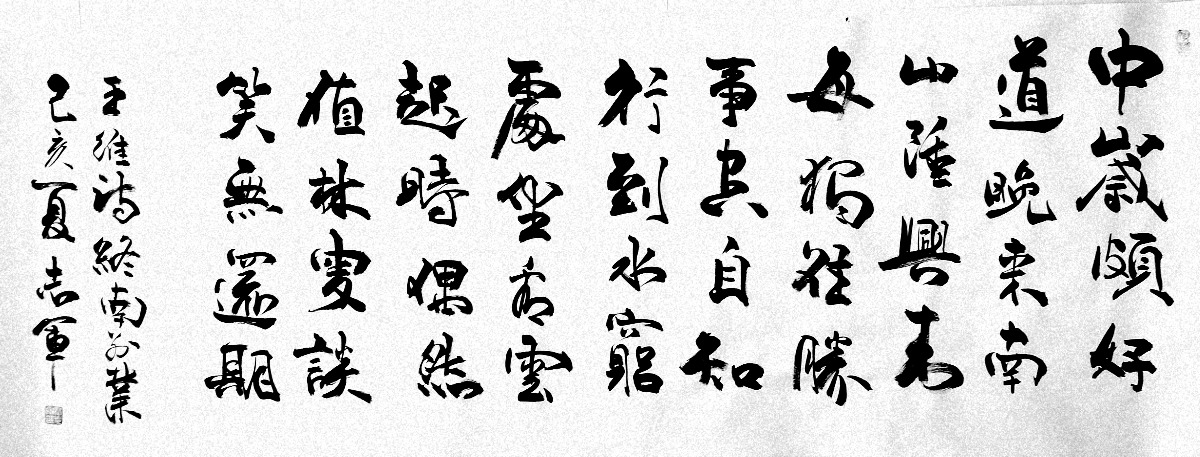 中歲頗好
道晚家南
山陲興來
每獨往勝
事空自知
行到水窮
處坐看雲
起時偶然
值林叟談
笑無還期
王維詩終南別業
己亥夏志軍